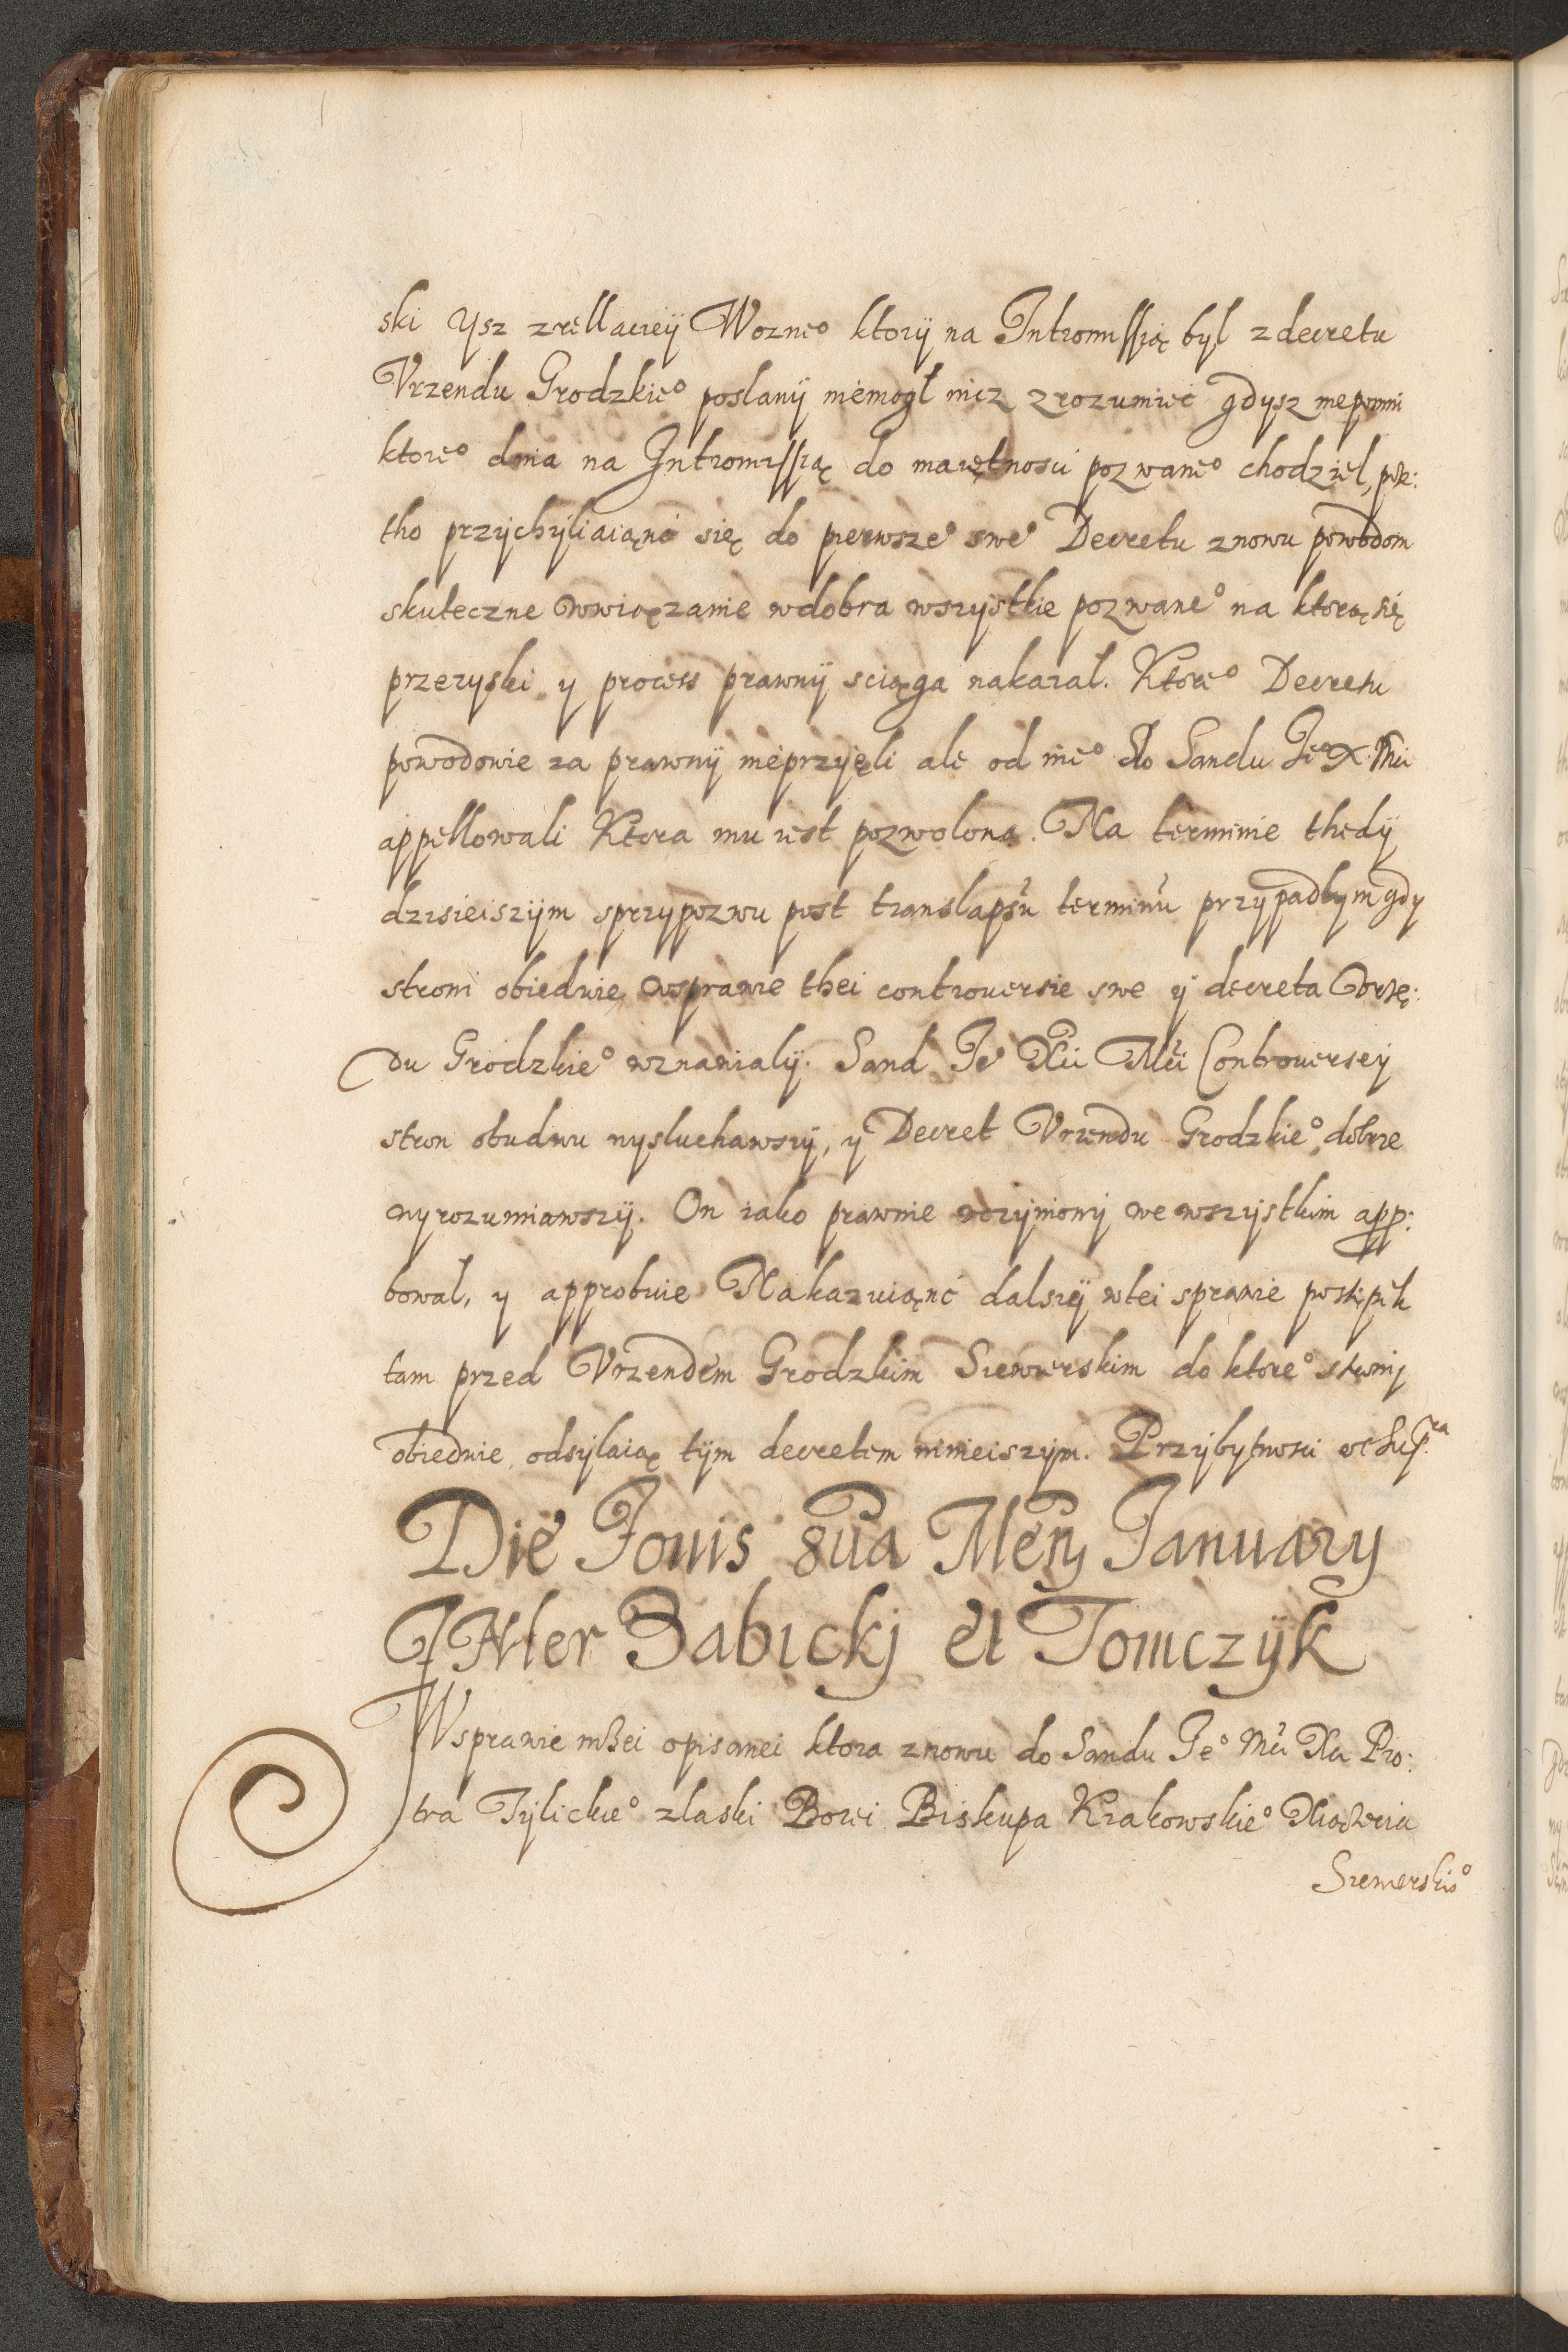 ski Ysz zrellacieÿ Wozne⁰ ktorÿ na Intromissią byl zdecretu
Vrzendu Grodzkie⁰ poslanÿ niemogł nicz zrozumieć gdysz niepomni
ktore⁰ dnia na Intromissią do maiętnosci pozwane⁰ chodził, prze:
tho przÿchÿliaiąnć się do pierwsze⁰ swe⁰ Decretu znowu powodom
skuteczne wwiązanie wdobra wszÿstkie pozwane⁰ na ktorą się
przezyski y process prawnÿ sciąga nakazal. Ktore⁰ Decretu
powodowie za prawnÿ nieprzyięli ale od nie⁰ do Sandu Je⁰ X. Mci
appellowali Ktora mu iest pozwolona. Na terminie thedÿ
dzisieiszÿm sprzypozwu post translapsu terminu przÿpadłym gdy
stroni obiedwie wsprawie thei controuersie swe ÿ decreta Vrzę:
du Grodzkie⁰ wznawialÿ. Sand Je⁰ Xci Mci Controuersiy
stron obudwu wysluchawszÿ, y Decret Vrzendu Grodzkie⁰ dobrze
wyrozumiawszÿ. On iako prawnie vczynionÿ we wszÿstkim app:
bowal, y approbuie Nakazuiąnć dalszÿ wtei sprawie postępek
tam przed Vrzendem Grodzkim Siewierskim do ktore⁰ stronÿ
obiedwie odsÿlaią tÿm decretem ninieiszÿm. Przÿbytnosci vt supra
Die Jouis 8ua Mens January
INter Babickj et Tomczÿk
Wsprawie wżei opisanei ktora znowu do Sandu Je⁰ Mci Xa Pio:
tra Tÿlickie⁰ zlaski Bożei Biskupa Krakowskie⁰ Xiążęcia
Siewierskie⁰